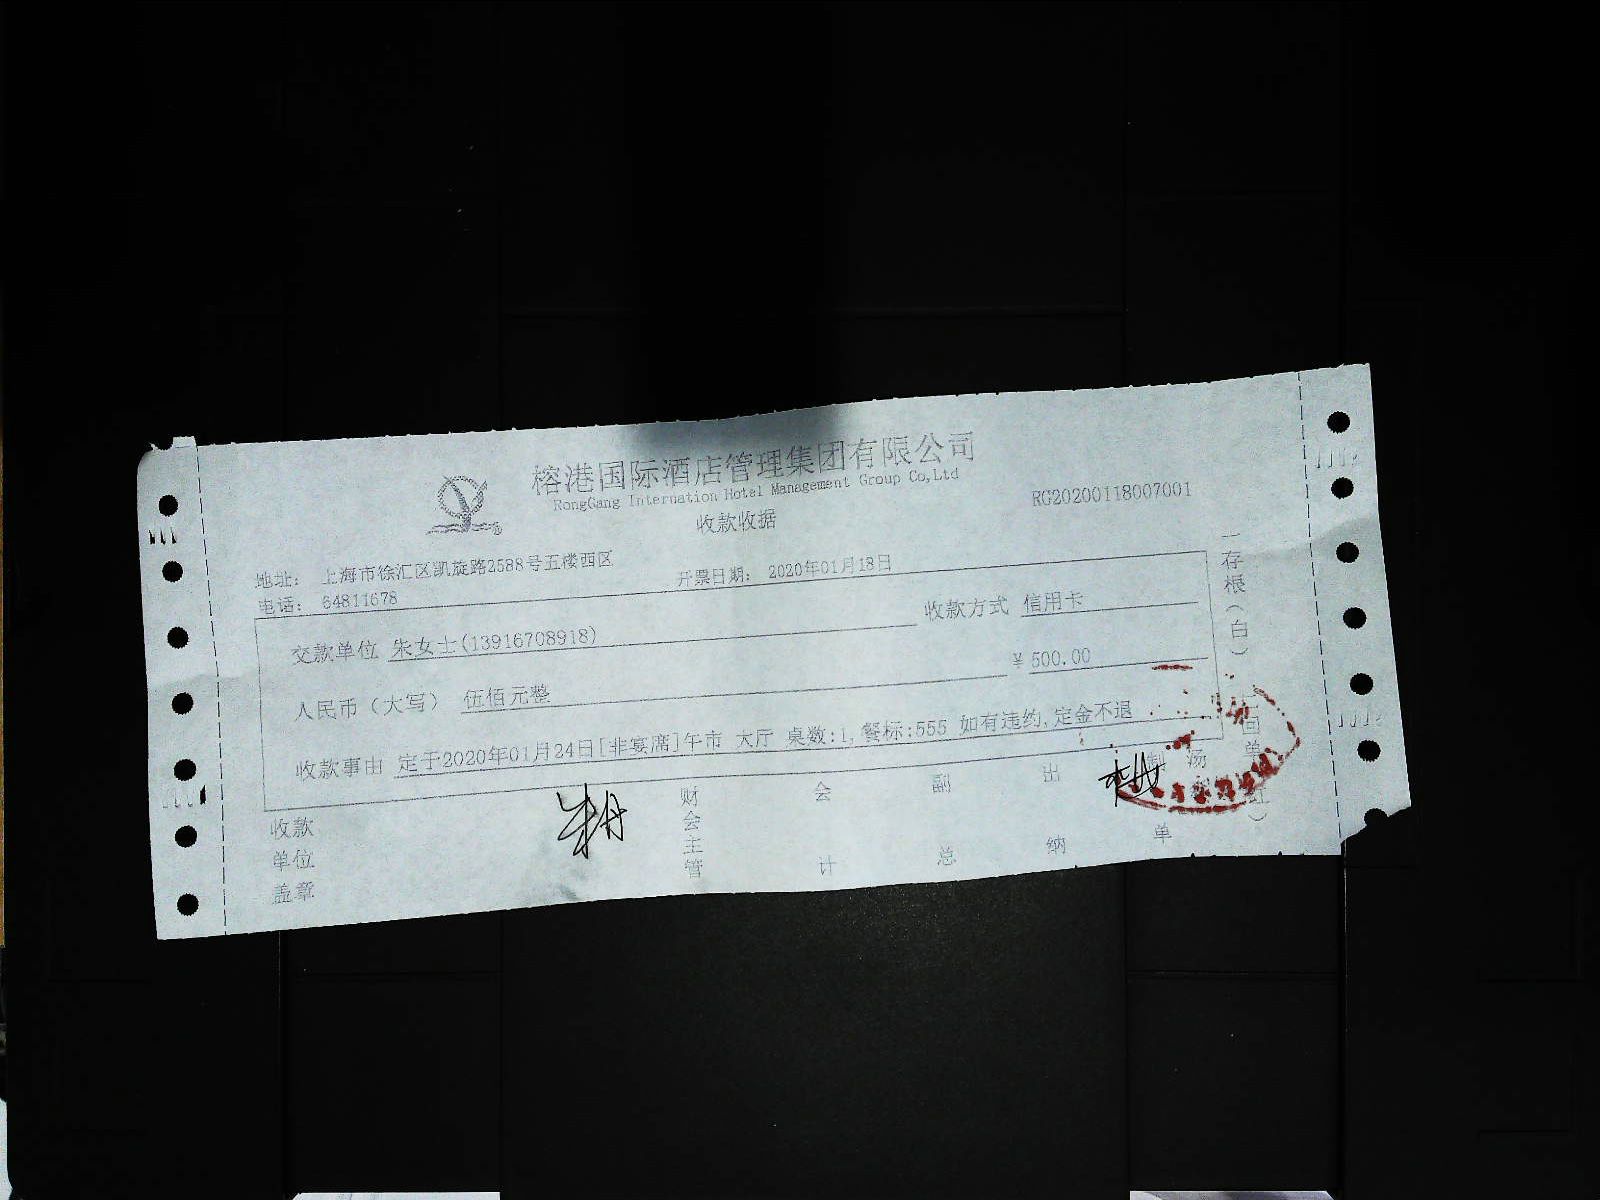 榕港国际酒店管理集团有限公司
RongGang Internation Hotel Management Group Co,Ltd
收款收据
RG20200118007001
地址: 上海市徐汇区凯旋路2588号五楼西区
开票日期: 2020年01月18日
电话: 64811678
交款单位 朱女士(13916708918)
收款方式 信用卡
人民币（大写） 伍佰元整
¥ 500.00
收款事由 定于2020年01月24日[非宴席]午市 大厅 桌数:1,餐标:555 如有违约,定金不退
收款单位盖章
财会主管
会计
副总
出纳
制单
汤
一存根(白)